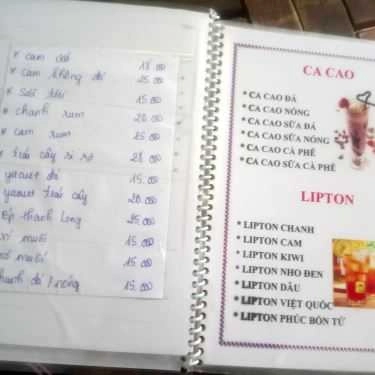 * cam đá 18.000
* cam không đá 25.000
* 15.000
* chanh rum 20.000
* cam rum 15.000
* trái cây si rô 28.000
yaourt đá 15.000
yaourt trái cây 20.000
ép thanh long 25.000
muối 15.000
15.000
chanh đá / nóng 15.000
CA CAO
* CA CAO ĐÁ
* CA CAO NÓNG
* CA CAO SỮA ĐÁ
* CA CAO SỮA NÓNG
* CA CAO CÀ PHÊ
* CA CAO SỮA CÀ PHÊ
LIPTON
* LIPTON CHANH
* LIPTON CAM
* LIPTON KIWI
* LIPTON NHO ĐEN
* LIPTON DÂU
* LIPTON VIỆT QUỐC
* LIPTON PHÚC BỒN TỬ